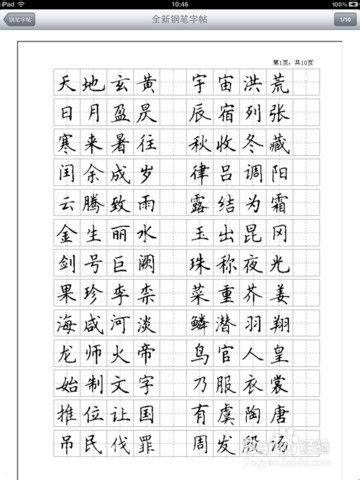 iPad 10:46 100%
钢笔字帖 全新钢笔字帖 1/10
第1页,共10页
天地玄黄 宇宙洪荒
日月盈昃 辰宿列张
寒来暑往 秋收冬藏
闰余成岁 律吕调阳
云腾致雨 露结为霜
金生丽水 玉出昆冈
剑号巨阙 珠称夜光
果珍李柰 菜重芥姜
海咸河淡 鳞潜羽翔
龙师火帝 鸟官人皇
始制文字 乃服衣裳
推位让国 有虞陶唐
吊民伐罪 周发殷汤